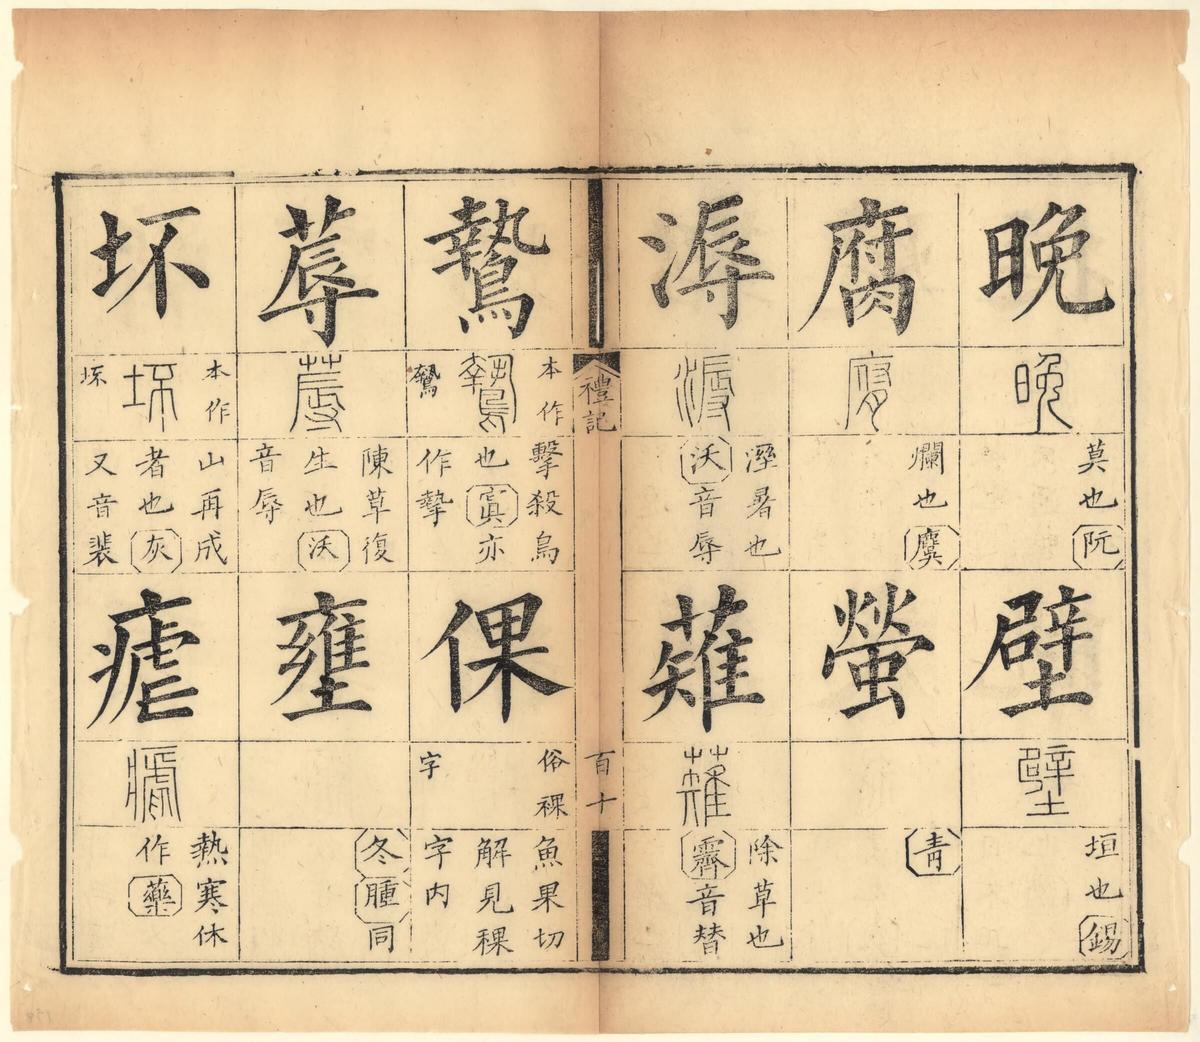 晚
晚
莫也阮
壁
壁
垣也錫
腐
爛也麌
螢
青
溽
溽
溼暑也
沃音辱
薙
薙
除草也
霽音替
禮記
百十
鷙
本作
鷙
擊殺鳥
也寘亦
作摯
倮
俗裸
字
魚果切
解見稞
字内
蓐
蓐
陳草復
生也沃
音辱
壅
冬腫同
坏
本作
坏
山再成
者也灰
又音裴
瘧
瘧
熱寒休
作藥